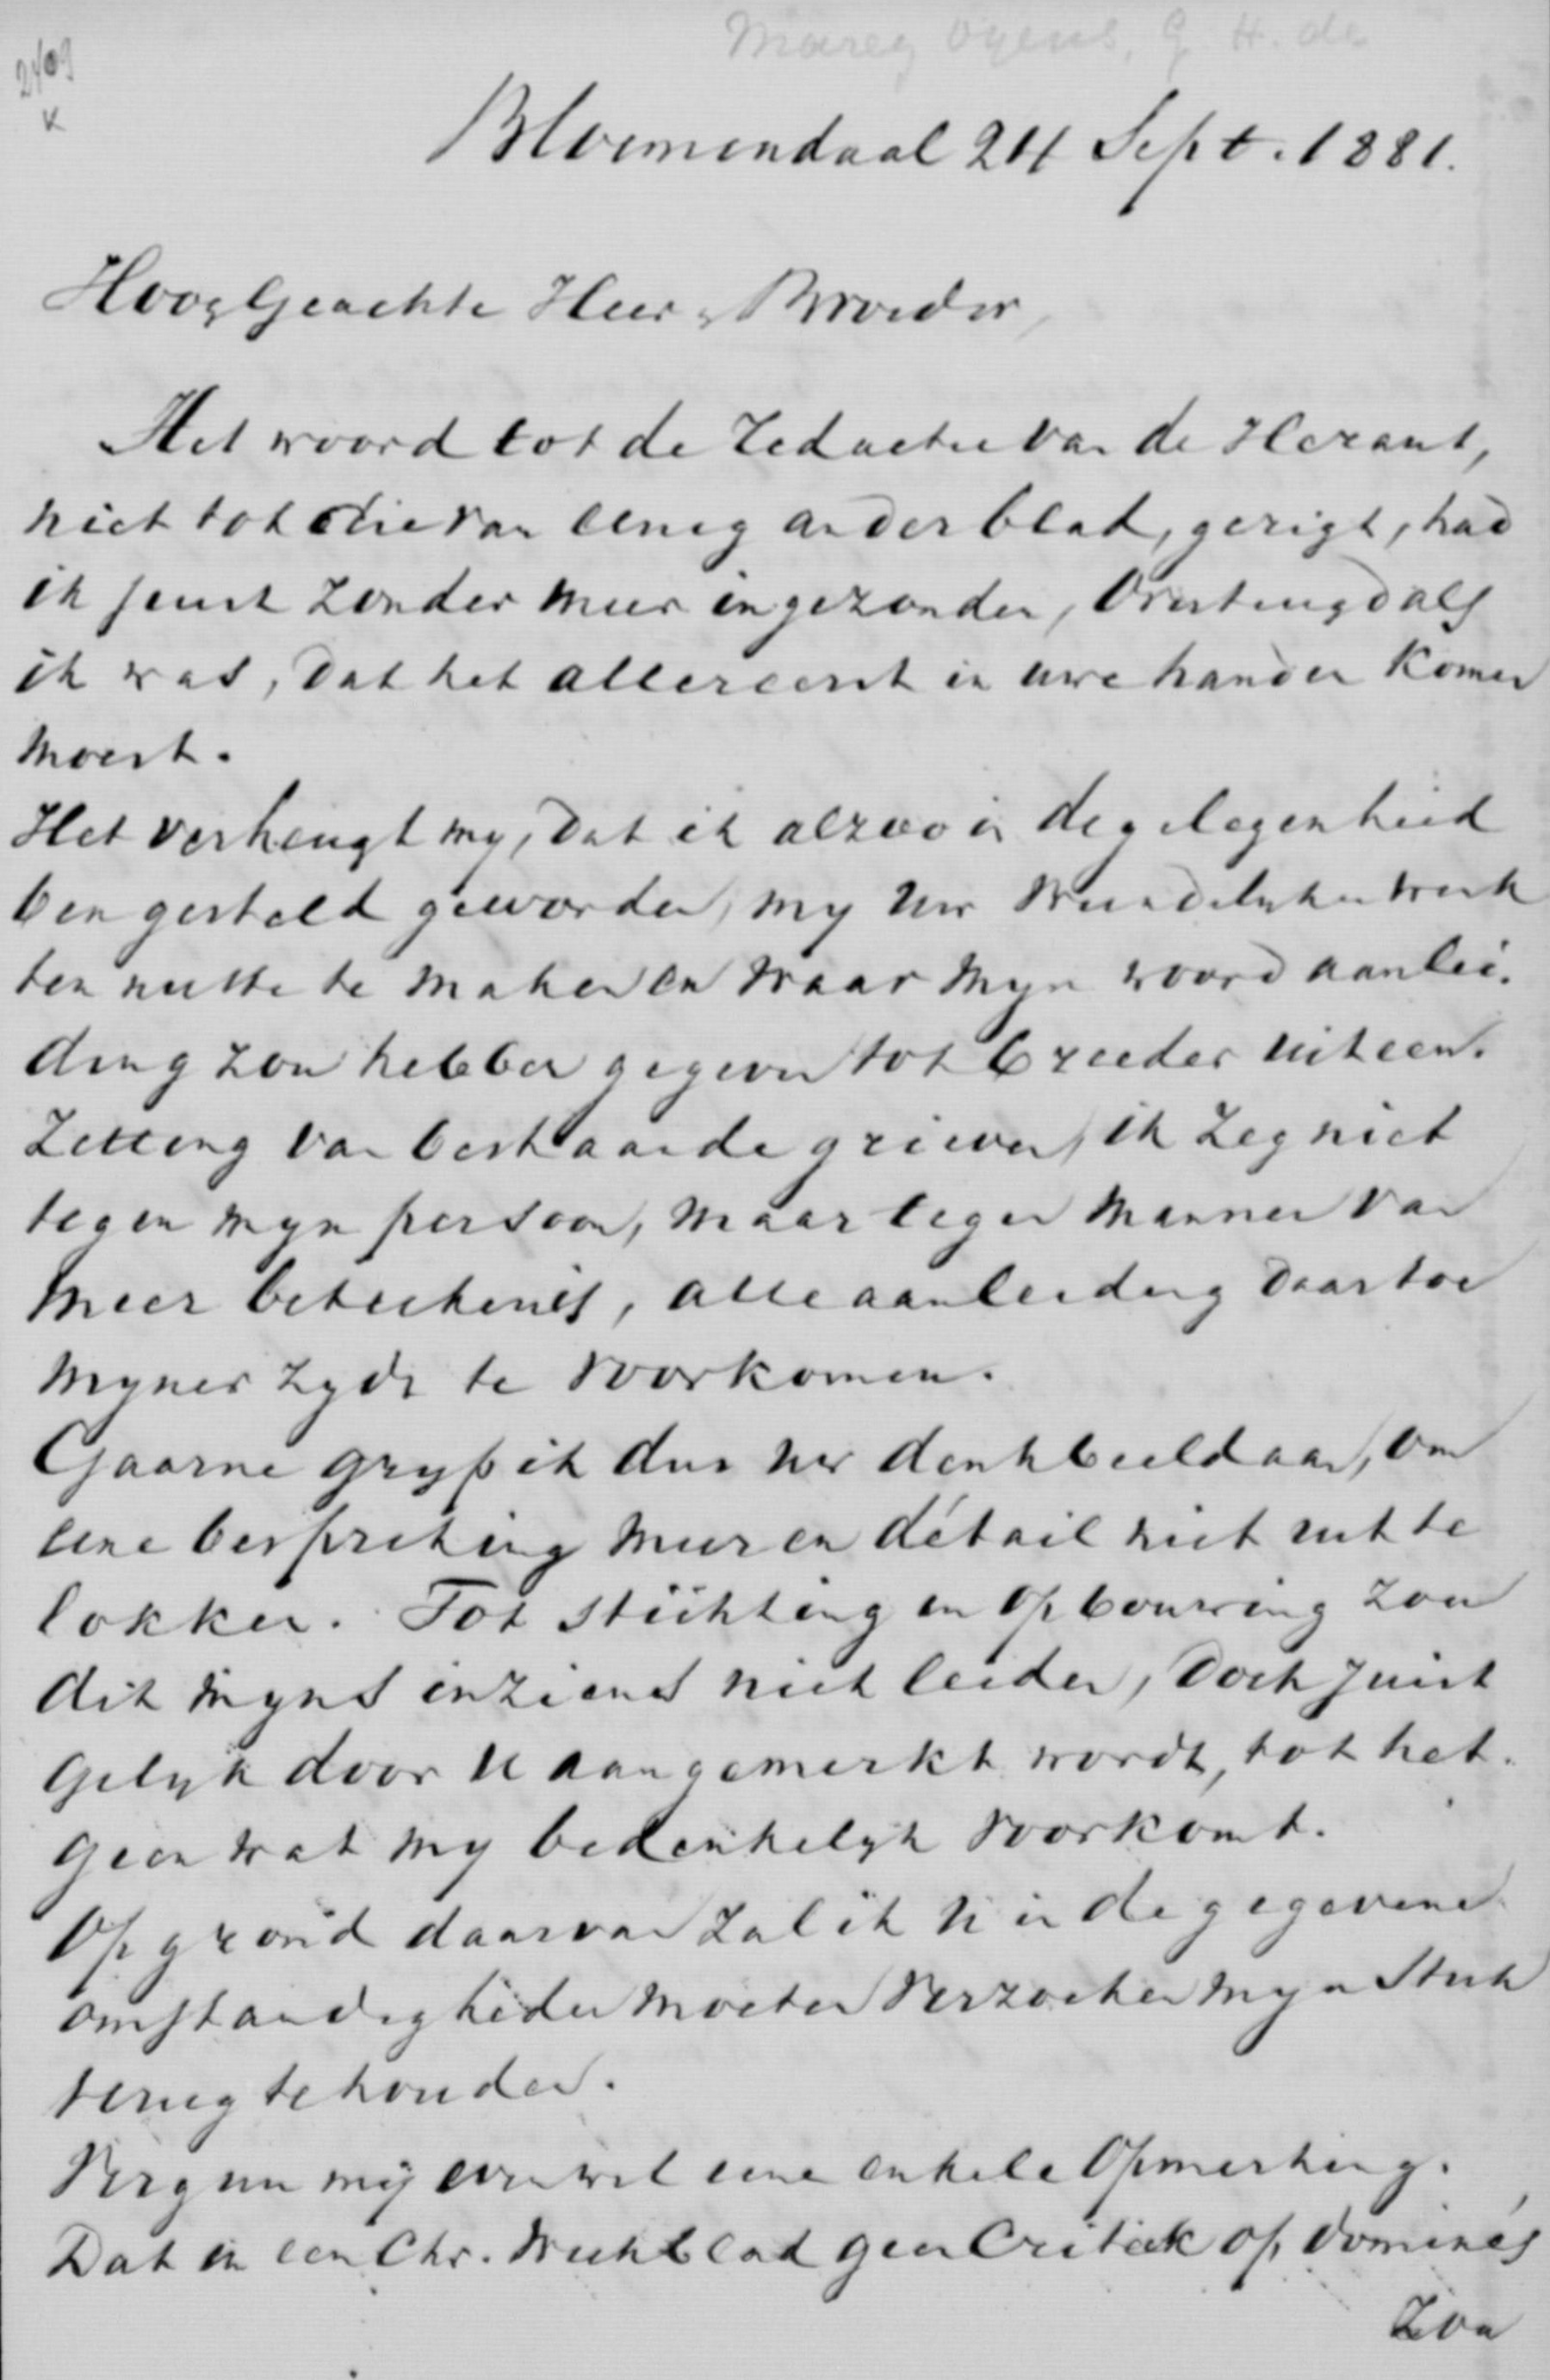 Marez Oyens, G H. de
2409
Bloemendaal 24 Sept. 1881.
HoogGeachte Heer & Broeder,
Het woord tot de redactie van de Heraut,
niet tot die van eenig ander blad, gerigt, had
ik juist zonder meer ingezonden, overtuigd als
ik was, dat het allereerst in uwe handen komen
moest.
Het verheugt my, dat ik alzoo in de gelegenheid
ben gesteld geworden, my Uw vriendelyken wenk
ten nutte te maken en waar myn woord aanlei-
ding zou hebben gegeven tot breeder uiteen-
zetting van bestaande grieven, ik zeg niet
tegen myn persoon, maar tegen mannen van
meer beteekenis, alle aanleiding daartoe
myner zyds te voorkomen.
Gaarne gryp ik dus uw denkbeeld aan, om
eene bespreking meer en détail niet uit te
lokken. Tot stichting en opbouwing zou
dit myns inziens niet leiden, doch juist
gelyk door U aangemerkt wordt, tot het-
geen wat my bedenkelyk voorkomt.
Op grond daarvan zal ik U in de gegevene
omstandigheden moeten verzoeken myn stuk
terug te houden.
Vergun mij evenwel eene enkele opmerking.
Dat in een Chr. Weekblad geen Critiek op dominés
zou